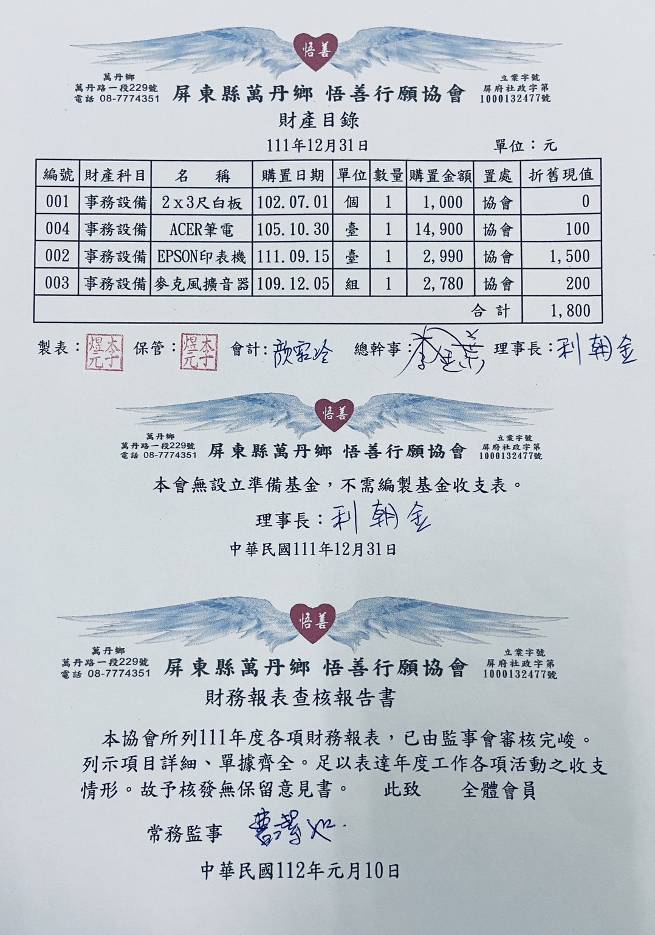 悟善
萬丹鄉
萬丹路一段229號
電話 08-7774351
屏東縣萬丹鄉 悟善行願協會
立業字號
屏府社政字第
1000132477號
財產目錄
111年12月31日 單位：元
編號 財產科目 名 稱 購置日期 單位 數量 購置金額 置處 折舊現值
001 事務設備 2x3尺白板 102.07.01 個 1 1,000 協會 0
004 事務設備 ACER筆電 105.10.30 臺 1 14,900 協會 100
002 事務設備 EPSON印表機 111.09.15 臺 1 2,990 協會 1,500
003 事務設備 麥克風擴音器 109.12.05 組 1 2,780 協會 200
合 計 1,800
製表： 保管： 會計： 總幹事： 理事長：利朝金
悟善
萬丹鄉
萬丹路一段229號
電話 08-7774351
屏東縣萬丹鄉 悟善行願協會
立業字號
屏府社政字第
1000132477號
本會無設立準備基金，不需編製基金收支表。
理事長：利朝金
中華民國111年12月31日
悟善
萬丹鄉
萬丹路一段229號
電話 08-7774351
屏東縣萬丹鄉 悟善行願協會
立業字號
屏府社政字第
1000132477號
財務報表查核報告書
本協會所列111年度各項財務報表，已由監事會審核完峻。
列示項目詳細、單據齊全。足以表達年度工作各項活動之收支
情形。故予核發無保留意見書。 此致 全體會員
常務監事
中華民國112年元月10日